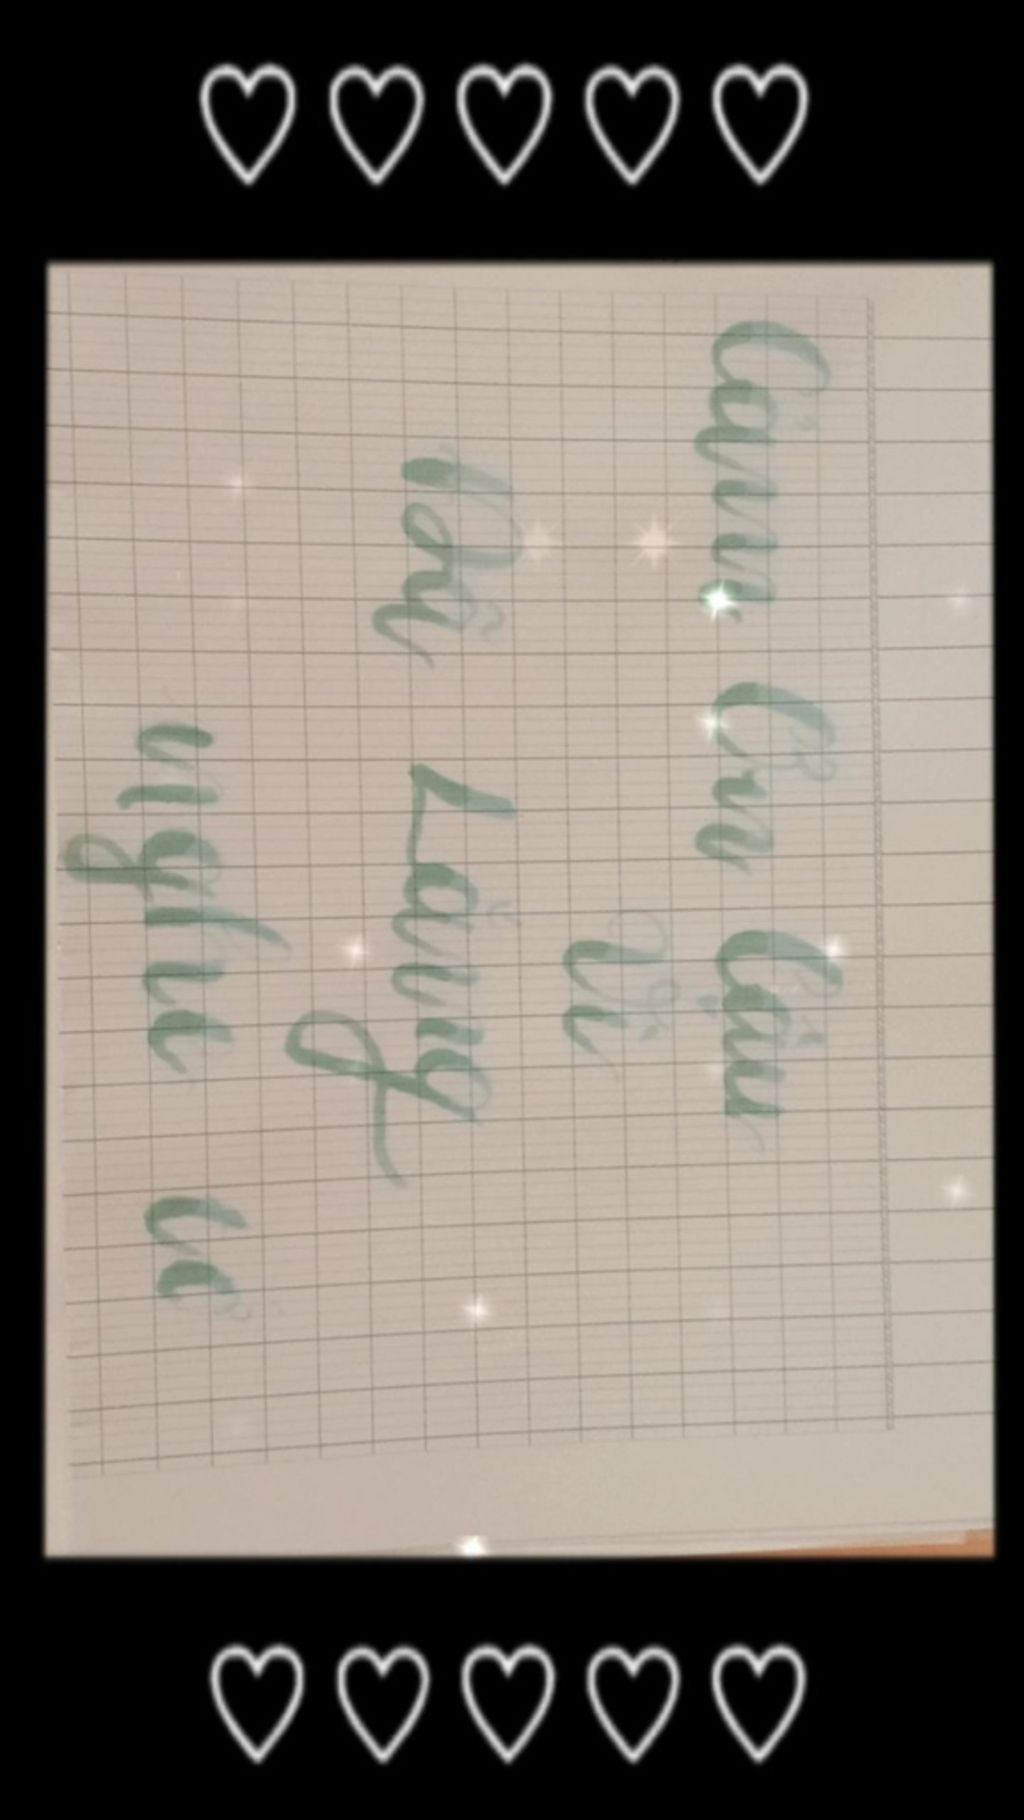 Cảm Ơn Cậu
Vì
Đã Lắng
nghe tớ